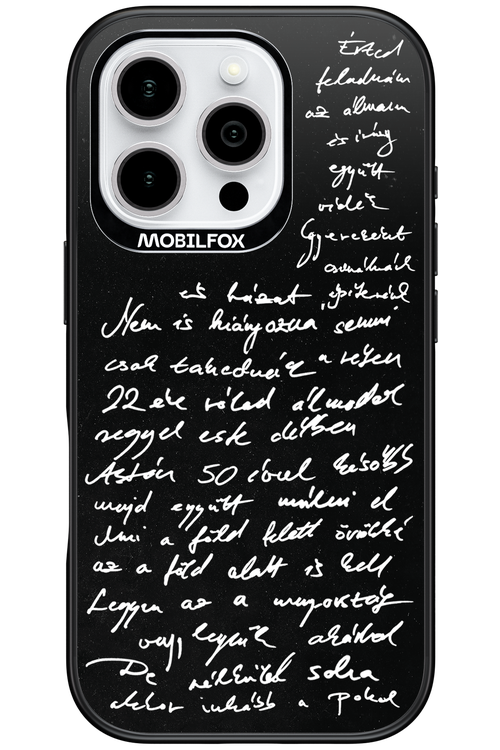 Érted
feladnám
az álmaim
és így
együtt
veled
Gyerekeket
csinálnánk
és házat építenénk
Nem is hiányozna semmi
csak takednád a
22 éve rólad álmodok
reggel este délben
Aztán 50 évvel később
majd együtt múlni el
Ami a föld felett örökké
az a föld alatt is kell
Legyen az a mennyország
vagy legyünk akárhol
De nélküled soha
akkor inkább a pokol
MOBILFOX